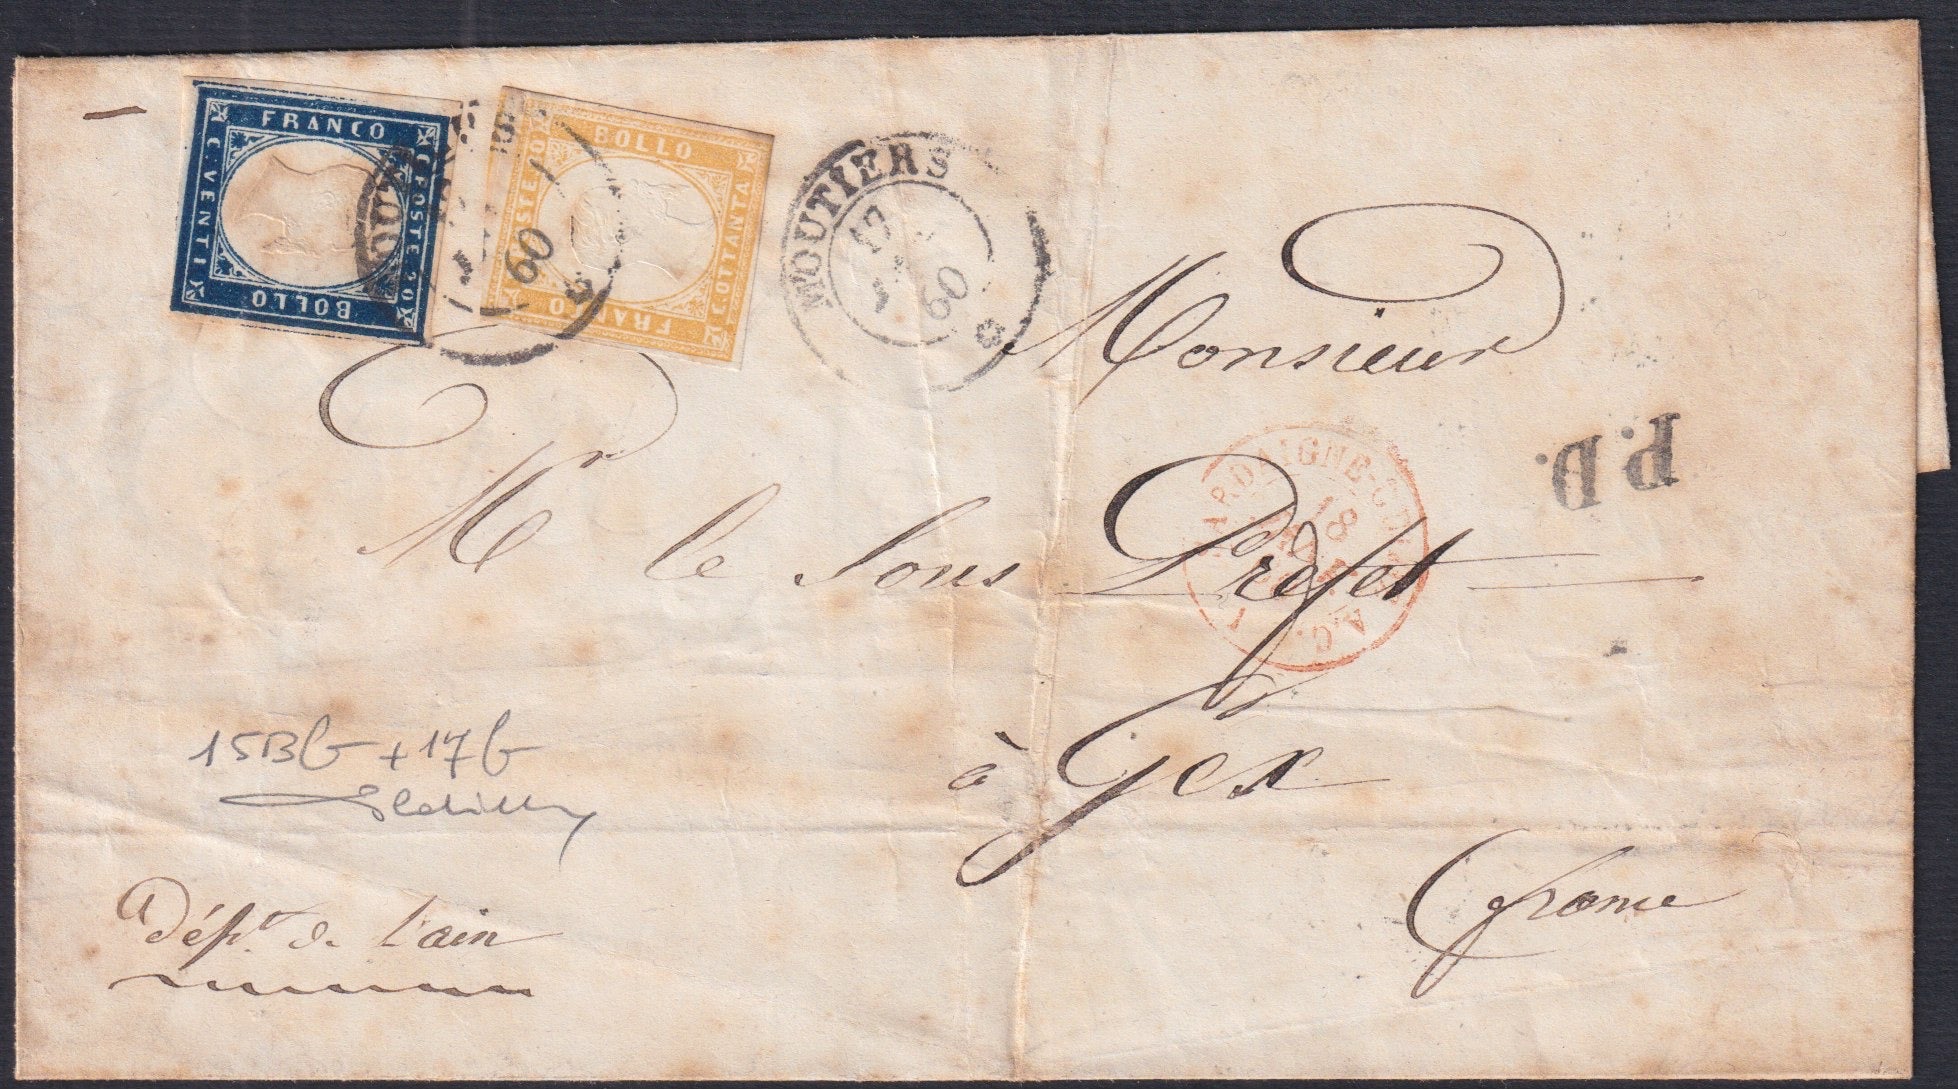 FRANCO
C. POSTE 20
BOLLO
C. VENTI
BOLLO
C. OTTANTA
FRANCO
MOUTIERS
17
60
60
Monsieur
P.D.
SARDAIGNE-CULOZ
18
A.C.
Mr le Sous Préfet
à Gex
France
15Bb + 17b
Dépt de l'ain